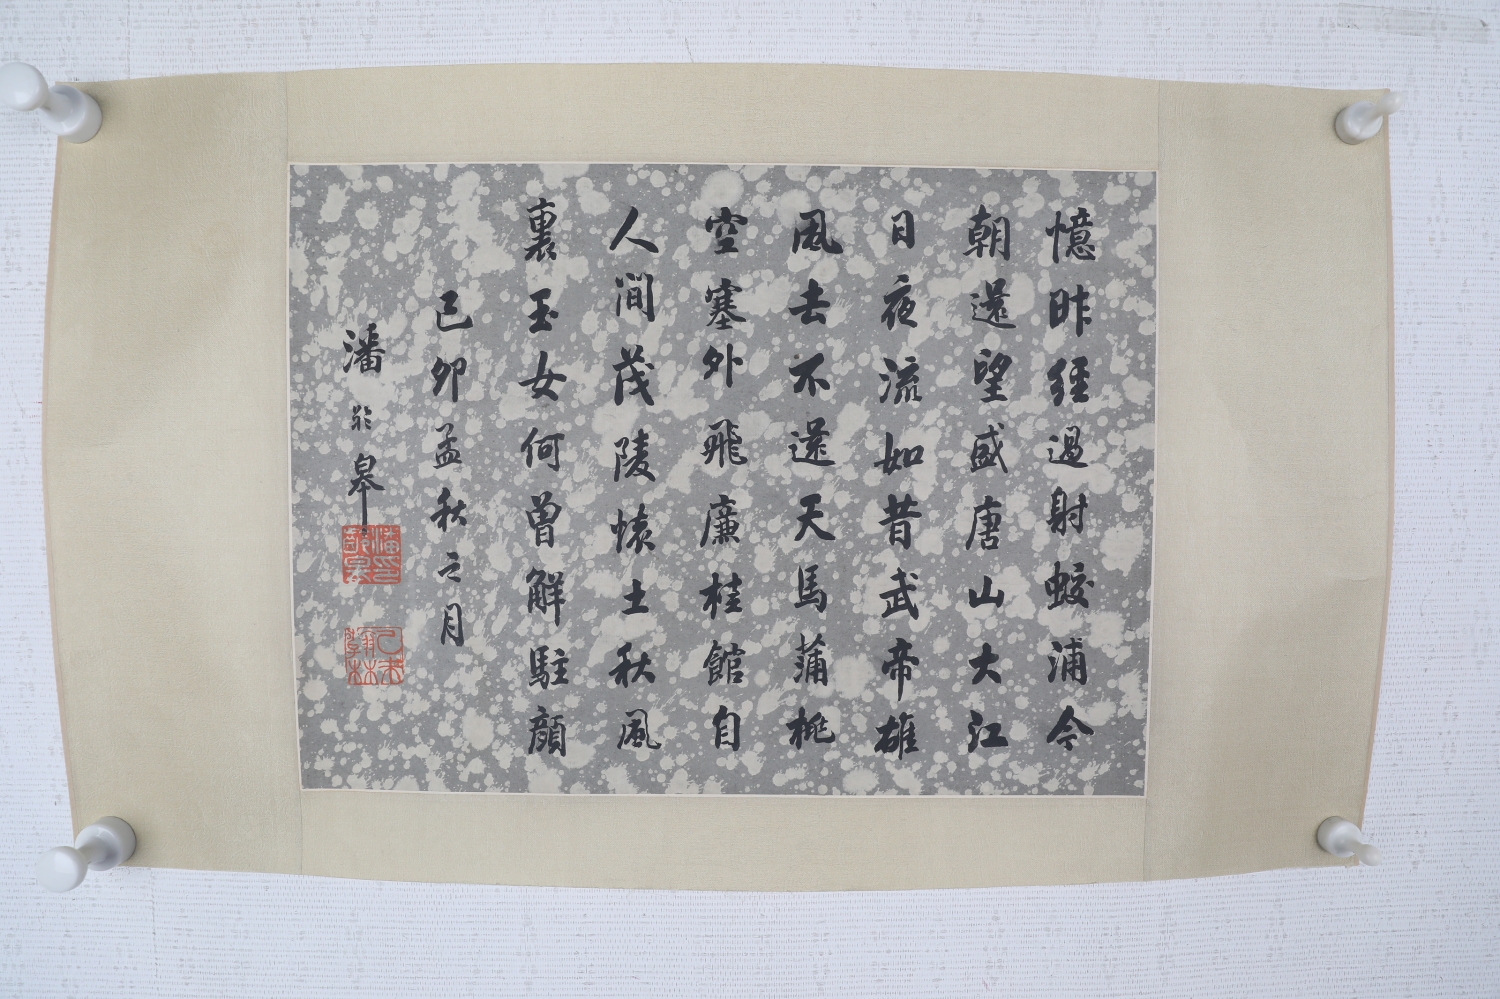 憶昨經過射蛟浦今
朝還望盛唐山大江
日夜流如昔武帝雄
風去不還天馬蒲桃
空塞外飛廉桂館自
人間茂陵懷土秋風
裏玉女何曾解駐顏
己卯孟秋之月
潘齡皋
潘印齡皋
乙未翰林